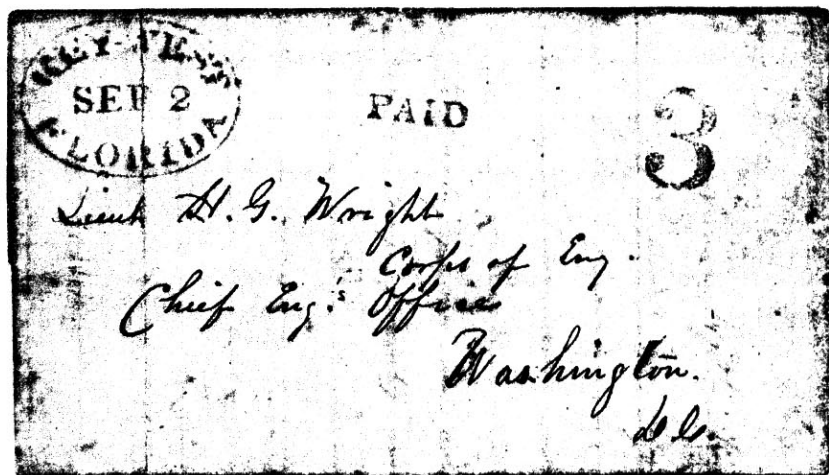 KEY-WEST
SEP 2
FLORIDA
PAID
3
Lieut H. G. Wright
Corps of Eng.
Chief Eng.'s Office
Washington.
D.C.